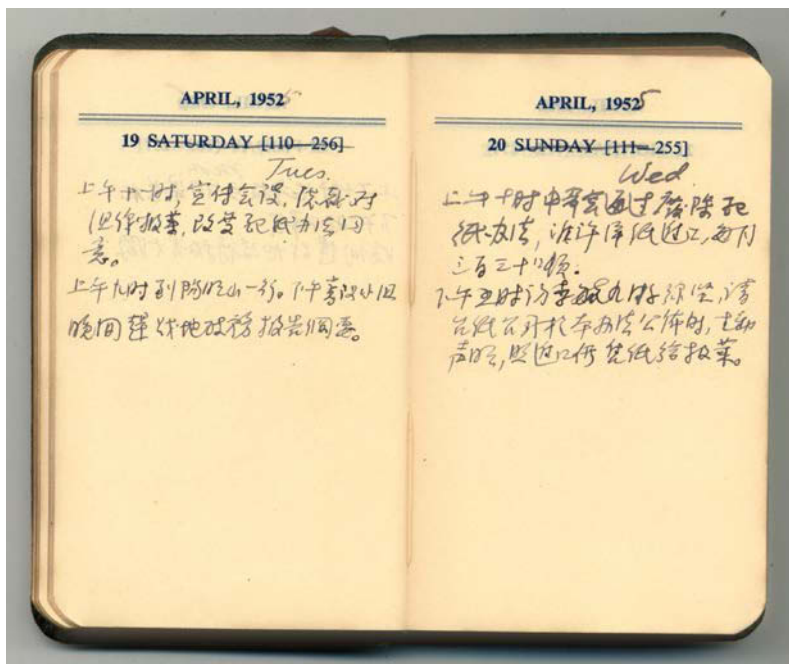 APRIL, 1952 5
19 SATURDAY [110—256]
Tues.
上午十时,宣传会议,
但律报业,改变配纸办法同
意。
上午九时到阳明山一行。下午
晚间 战地政务报告纲要。
APRIL, 1952 5
20 SUNDAY [111—255]
Wed
上午十时中常会通过废除配
纸办法,准许洋纸进口,每月
三百三十吨。
下午五时访 请
台纸公司于本办法公布时,主动
声明,照进口价售纸给报业。